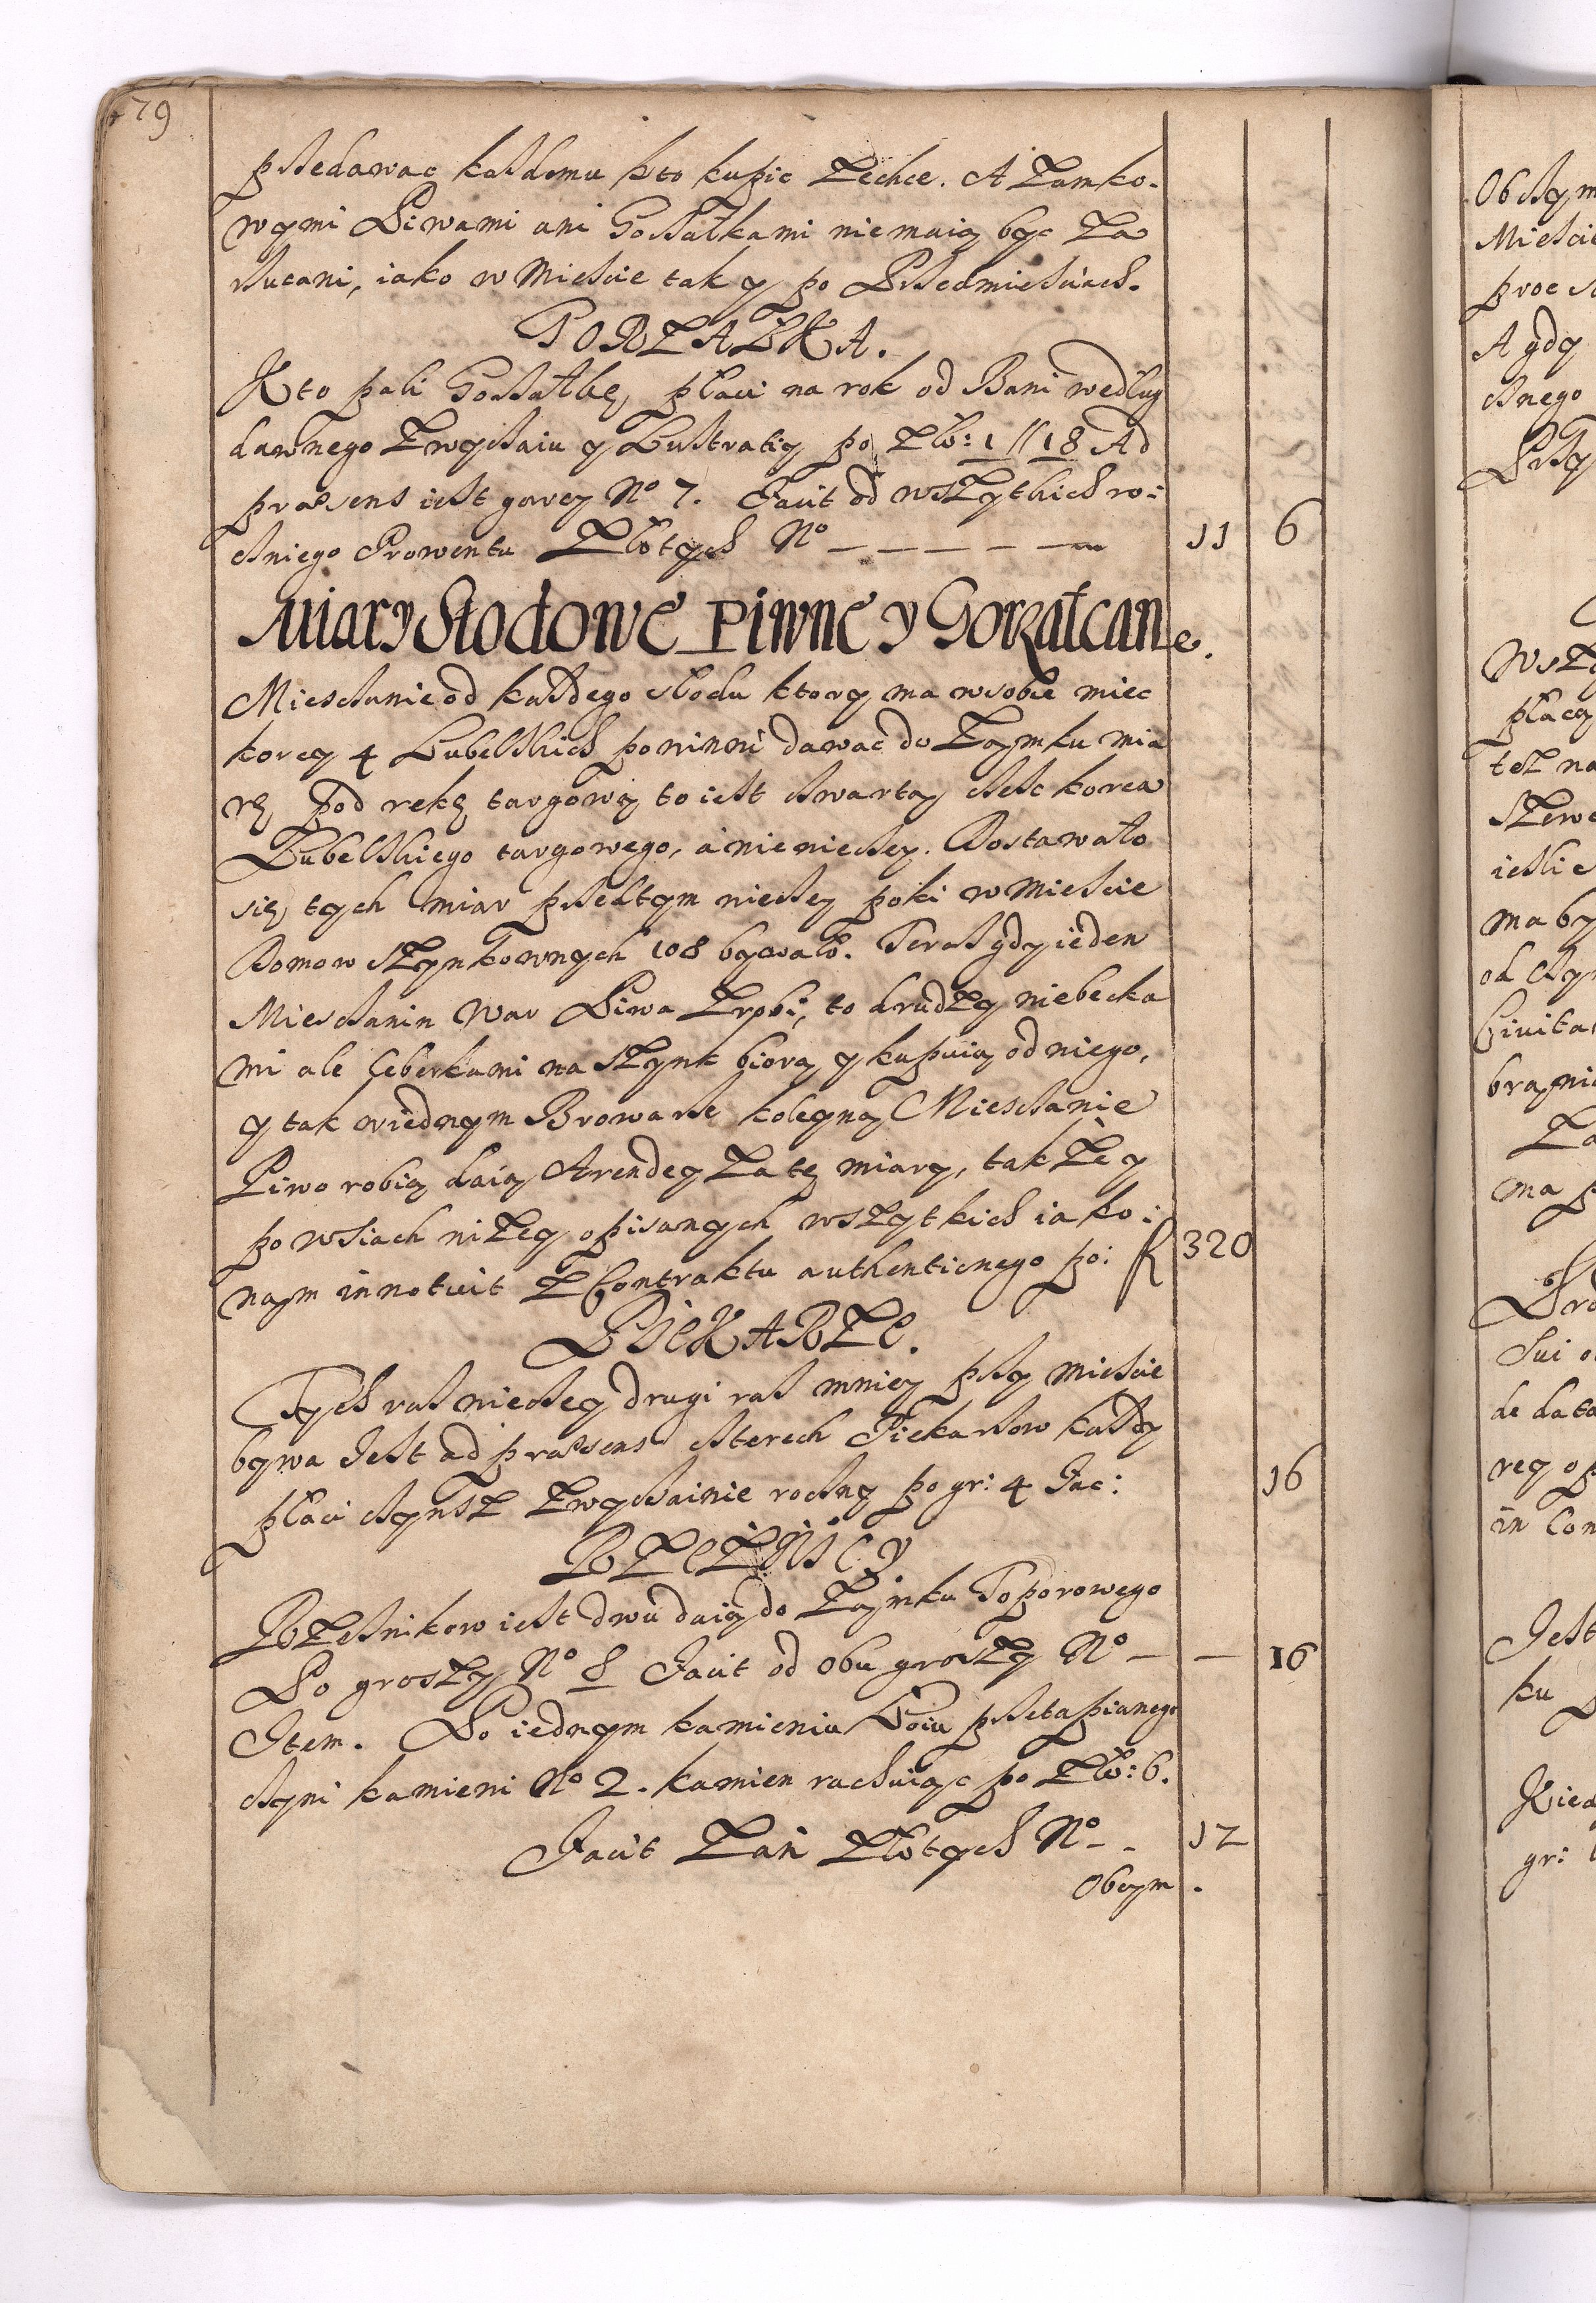 79
przedawac kazdemu kto kupic zechce. A Zamko-
wymi Piwami ani Gorzałkami niemaią byc za
rzucani, iako w Miescie tak y po Przedmiesciach.
GORZAŁKA.
Kto pali Gorzałkę, płaci na rok od Bani według
dawnego zwyczaiu y Lustratiy po Zło: 1 // 18 Ad
præsens iest garcy No 7. Facit od wszytkich ro-
cznego Prowentu Złotych No — — — — — 11 6
Miary Słodowe Piwne y Gorzałcane.
Miesczanie od kazdego słodu ktory ma wsobie miec
korcy 4 Lubelskich powinni dawac do Zamku mia
rę pod rękę targową to iest czwartą częsc korca
Lubelskiego targowego, a nie wieczey. Dostawało
się tych miar przedtym wieczey poki w Miescie
Domow Szynkownych 108 bywało. Teraz gdy ieden
Miesczanin War Piwa zrobi, to drudzy niebecka
mi ale Ceberkami na Szynk biorą y kupuią od niego,
y tak wiednym Browarze koleyną Miesczanie
Piwo robią daią Arendęy za tę miary, takze y
po wsiach nizey opisanych wszytkich iako:
nam innotuit z Contraktu authenticnego po: f 320
PIEKARZE.
Tych raz wieczey drugi raz mniey przy miescie
bywa Jest ad præsens czterech Piekarzow kazdy
płaci czynsz zwyczainie roczny po gr: 4 Fac: 16
RZEZNICY
Rzeznikow iest dwu daią do Zamku Toporowego
Po groszy No 8 Facit od obu groszy No — — 16
Item. Po iednym kamieniu Łoiu przetapianego
czyni kamieni No 2. kamien rachuiąc po Zło: 6.
Facit Zań Złotych No - - 12
Obcym.